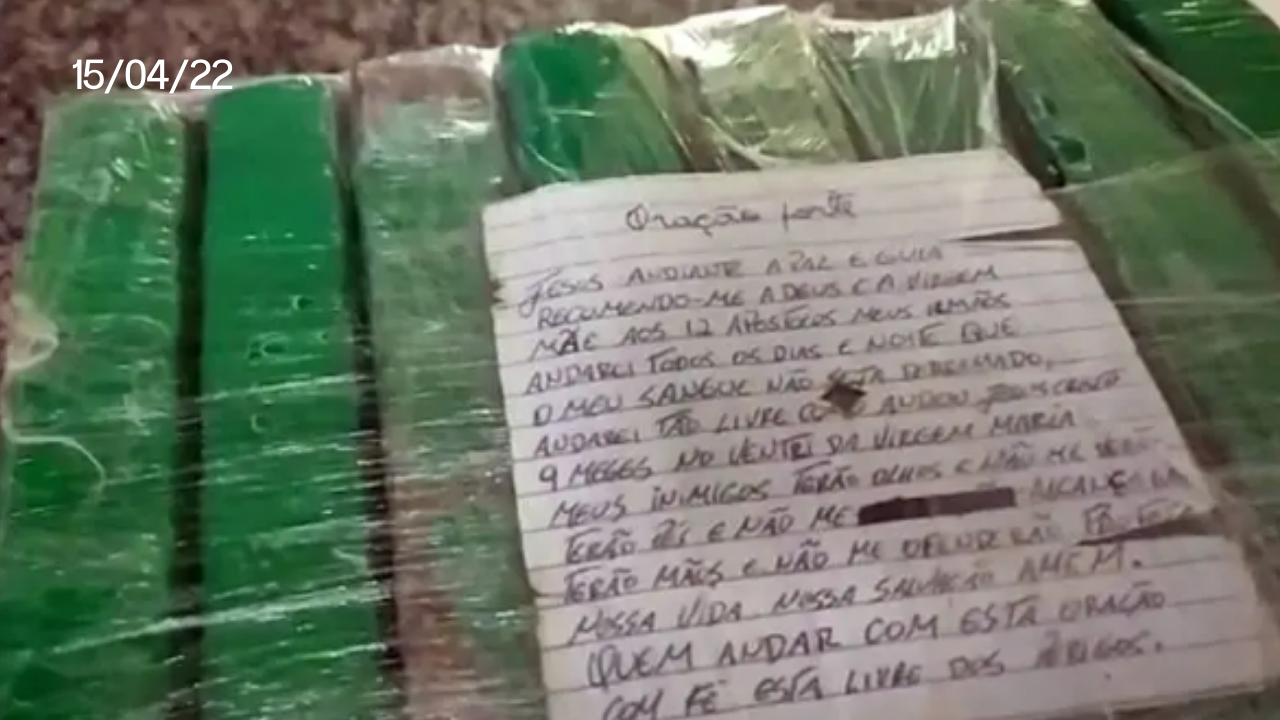 15/04/22
Oração forte
JESUS ANDIANTE A PAZ E GUIA
RECOMENDO-ME A DEUS E A VIRGEM
MÃE AOS 12 APOSTOLOS MEUS IRMÃOS
ANDAREI TODOS OS DIAS E NOITE QUE
O MEU SANGUE NÃO DEREMADO,
ANDAREI TÃO LIVRE ANDOU JESUS CRISTO
9 MESES NO VENTRE DA VIRGEM MARIA
MEUS INIMIGOS TERÃO OLHOS E NÃO ME VERÃO
TERÃO PÉS E NÃO ME
TERÃO MÃOS E NÃO ME OFENDERÃO
NOSSA VIDA NOSSA SALVAÇÃO AMÉM.
QUEM ANDAR COM ESTA ORAÇÃO
COM FÉ ESTA LIVRE DOS PERIGOS.